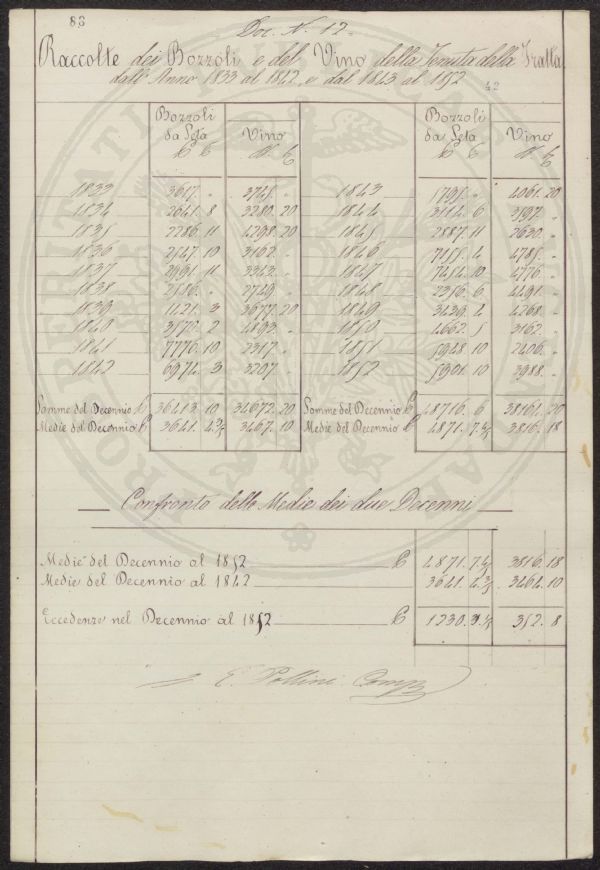 83
Doc. N. 12
Raccolte dei Bozzoli e del Vino della Tenuta della Fratta
dall' Anno 1833 al 1842, e dal 1843 al 1852
42
Bozzoli da Seta Vino Bozzoli da Seta Vino
1833 3617 " 3745 " 1843 5795 " 4061. 20
1834 2641. 8 3280. 20 1844 3114. 6 3597 "
1835 2286. 11 4298. 20 1845 2887. 11 2630 "
1836 2547. 10 3162 " 1846 7155. 4 4785 "
1837 2991. 11 1847 7454. 10 4776 "
1838 2586. " 2749 " 1848 2356. 6 4491 "
1839 1421. 3 3677. 20 1849 3439. 4 4268 "
1840 3572. 2 4893 " 1850 4662. 5 3162 "
1841 7776. 10 2317 " 1851 5948. 10 2406 "
1842 6974. 3 3207 " 1852 5901. 10 3988 "
Somme del Decennio 36413. 10 34672. 20 Somme del Decennio 48716. 6 38164. 20
Medie del Decennio 3641. 3467. 10 Medie del Decennio 4871. 3816. 18
Confronto delle Medie dei due Decenni
Medie del Decennio al 1852 4871. 3816. 18
Medie del Decennio al 1842 3641. 3464. 10
Eccedenze nel Decennio al 1852 1230. 352. 8
E. Pollini